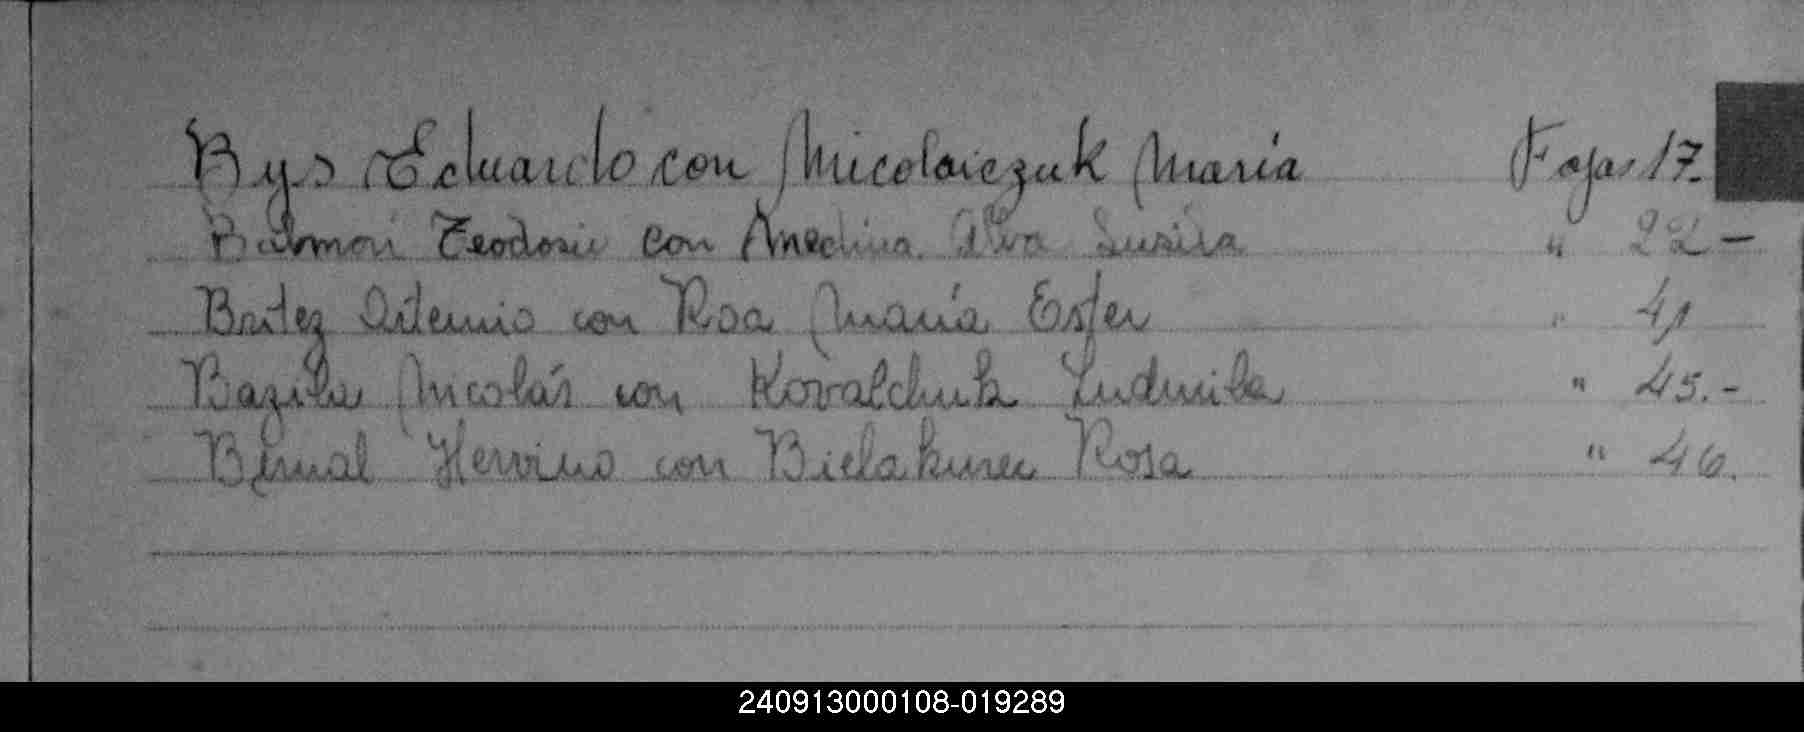 Bys Eduardo con Micolaiczuk María Fojas 17.
Teodosio con Medina Alva Susila " 22 -
Britez Artemio con Roa María Ester " 41
Bazila Nicolás con Kovalchuk Ludmila " 45.-
Bernal Hervino con Rosa " 46.
240913000108-019289